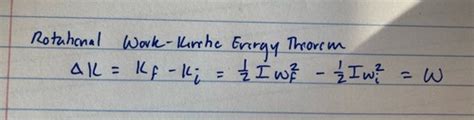 Rotational Work-Kinetic Energy Theorem
ΔK = K_f - K_i = ½ I ω_f² - ½ I ω_i² = W